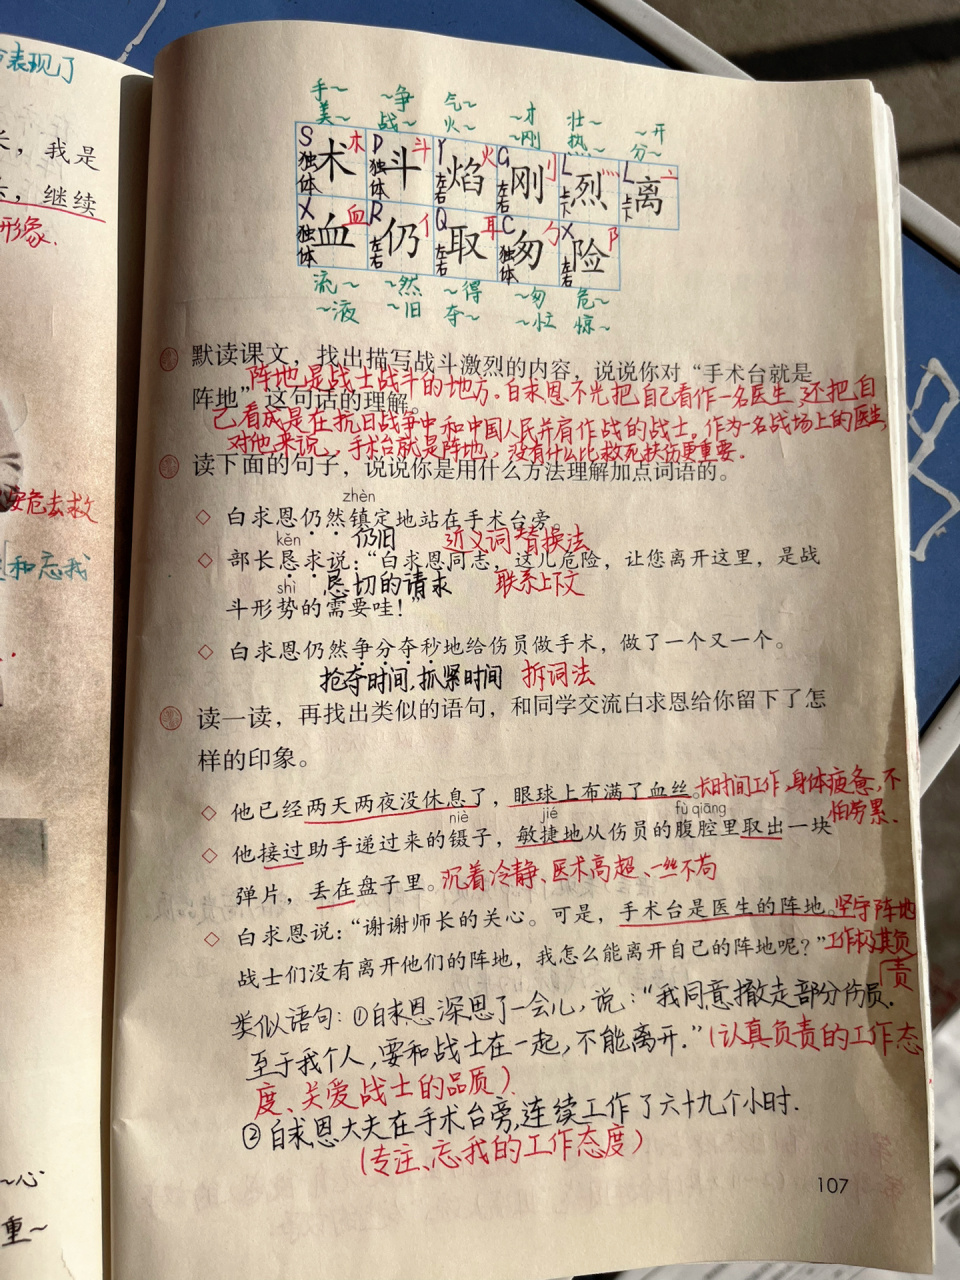 表现了
手～ ～争 气～ ～才 壮～ ～开
美～ 战～ 火～ ～刚 热～ 分～
S 独体 术 木 D 独体 斗 斗 Y 左右 焰 火 G 左右 刚 刂 L 上下 烈 灬 L 上下 离 亠
X 独体 血 血 R 左右 仍 亻 Q 左右 取 耳 C 独体 匆 勹 X 左右 险 阝
流～ ～然 ～得 ～匆 危～
～液 ～旧 夺～ ～忙 惊～
，我是
，继续
形象.
默读课文，找出描写战斗激烈的内容，说说你对“手术台就是
阵地是战士战斗的地方。白求恩不光把自己看作一名医生,还把自
阵地”这句话的理解。
己看成是在抗日战争中和中国人民并肩作战的战士。作为一名战场上的医生,
对他来说，手术台就是阵地，没有什么比救死扶伤更重要.
读下面的句子，说说你是用什么方法理解加点词语的。
安危去救
和忘我
zhèn
◇ 白求恩仍然镇定地站在手术台旁。
仍旧 近义词替换法
kěn
◇ 部长恳求说：“白求恩同志，这儿危险，让您离开这里，是战
恳切的请求 联系上下文
shì
斗形势的需要哇！”
◇ 白求恩仍然争分夺秒地给伤员做手术，做了一个又一个。
抢夺时间,抓紧时间 拆词法
读一读，再找出类似的语句，和同学交流白求恩给你留下了怎
样的印象。
◇ 他已经两天两夜没休息了，眼球上布满了血丝。长时间工作,身体疲惫,不
怕劳累.
niè jié fù qiāng
◇ 他接过助手递过来的镊子，敏捷地从伤员的腹腔里取出一块
弹片，丢在盘子里。沉着冷静、医术高超、一丝不苟
◇ 白求恩说：“谢谢师长的关心。可是，手术台是医生的阵地。坚守阵地
战士们没有离开他们的阵地，我怎么能离开自己的阵地呢？”工作极其负
责
类似语句：①白求恩深思了一会儿，说：“我同意撤走部分伤员.
至于我个人,要和战士在一起，不能离开.”(认真负责的工作态
度、关爱战士的品质)
②白求恩大夫在手术台旁,连续工作了六十九个小时.
(专注、忘我的工作态度)
～心
重～
107